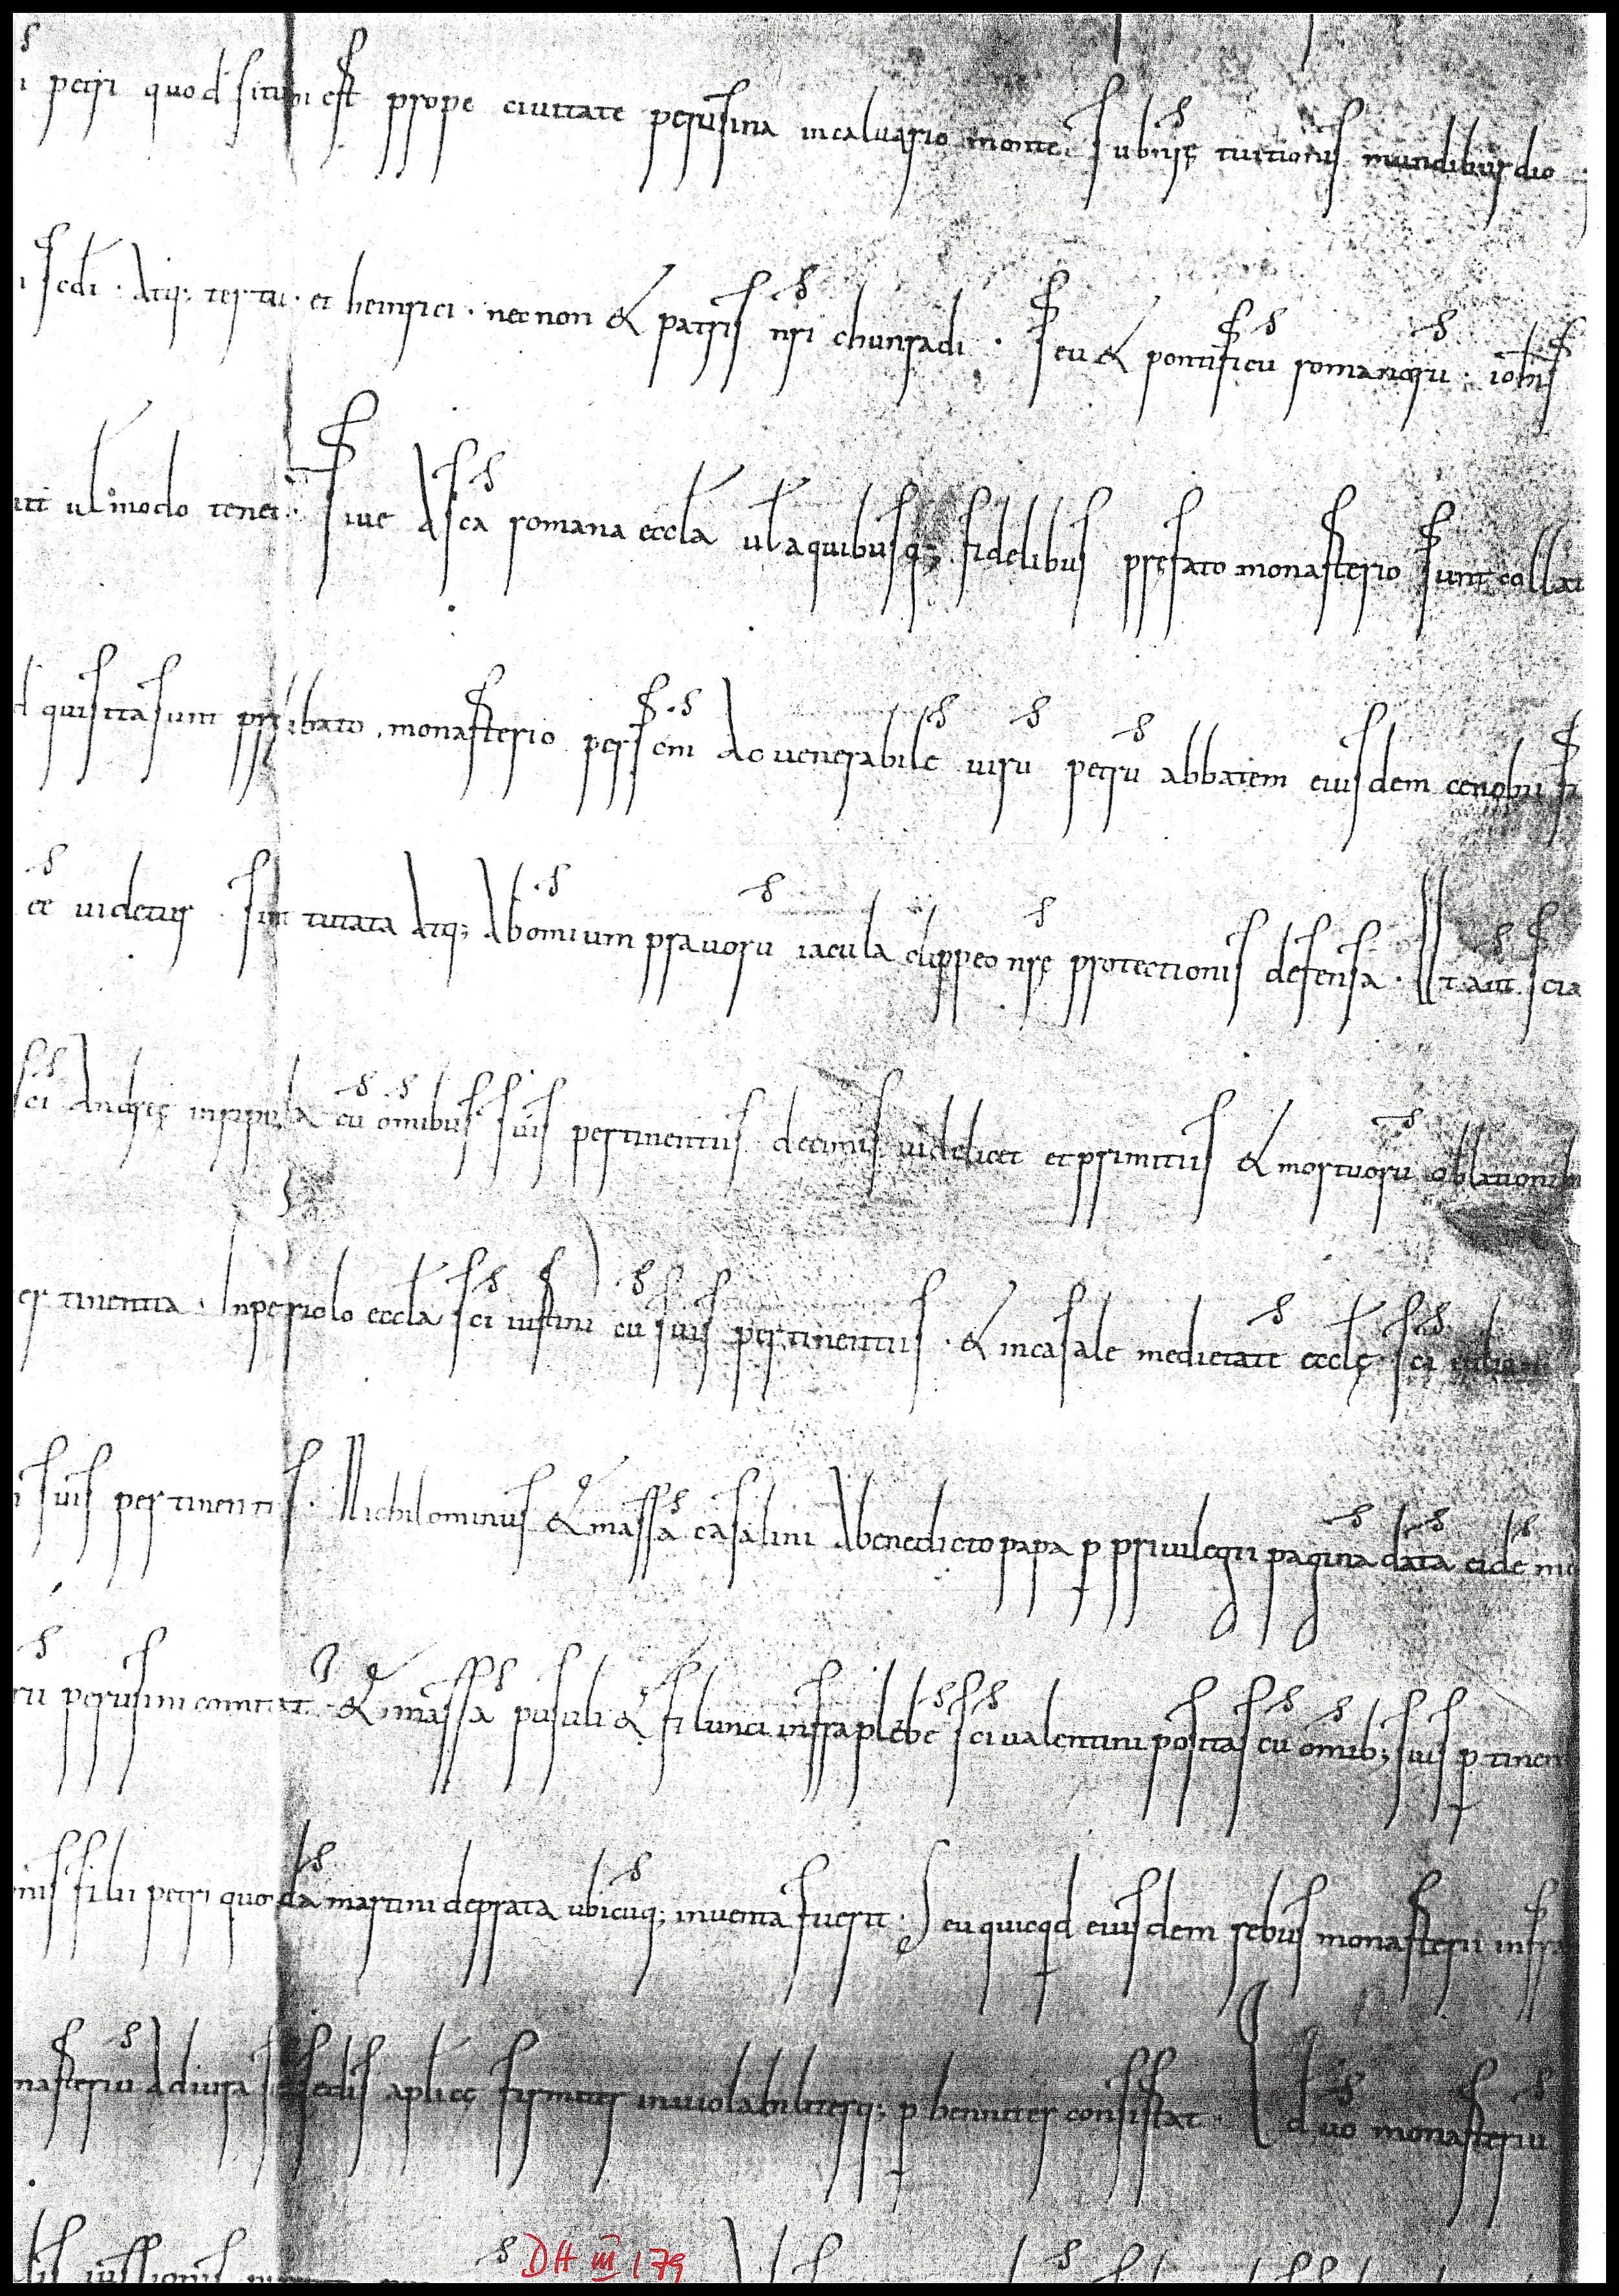 i petri quod situm est prope ciuitate perusina incaluario monte. sub nrę tuitionis mundiburdio
i scdi. Atq; tertii. et heinrici. necnon & patris nri chunradi. seu & pontificu romanoru. iohis
uit ul modo tenet. siue A sca romana eccla ul aquibusq; fidelibus pręfato monasterio sunt collat
d quisita sunt prelibato monasterio per scm Ac uenerabile uiru petru abbatem eiusdem cenobii
ee uidetur. sint tutata Atq; Ab omium prauoru iacula clippeo nrę protectionis defensa. Haut
sci Andreę cu omibus suis pertinentiis. decimis. uidelicet et primitiis & mortuoru oblationi
er tinentia. In petriolo eccla sci iustini cu suis pertinentiis. & in casale medietate ecclę. sci
i suis pertinentiis. Nichilominus & massa casalini A benedicto papa p priuilegii pagina data eide mo
ru perusini comitat. & massa pusuli & filunci infra plebe sci ualentini posita cu omib; suis p tinen
nis filii petri quonda martini deprata ubicuq; inuenta fuerit. Seu quicqd eiusdem rebus monasterii infra
nasteriu Ad iura sedis aplicę firmiter inuiolabiliterq; p henniter consistat. Quo monasteriu
iussionis
DH III 179